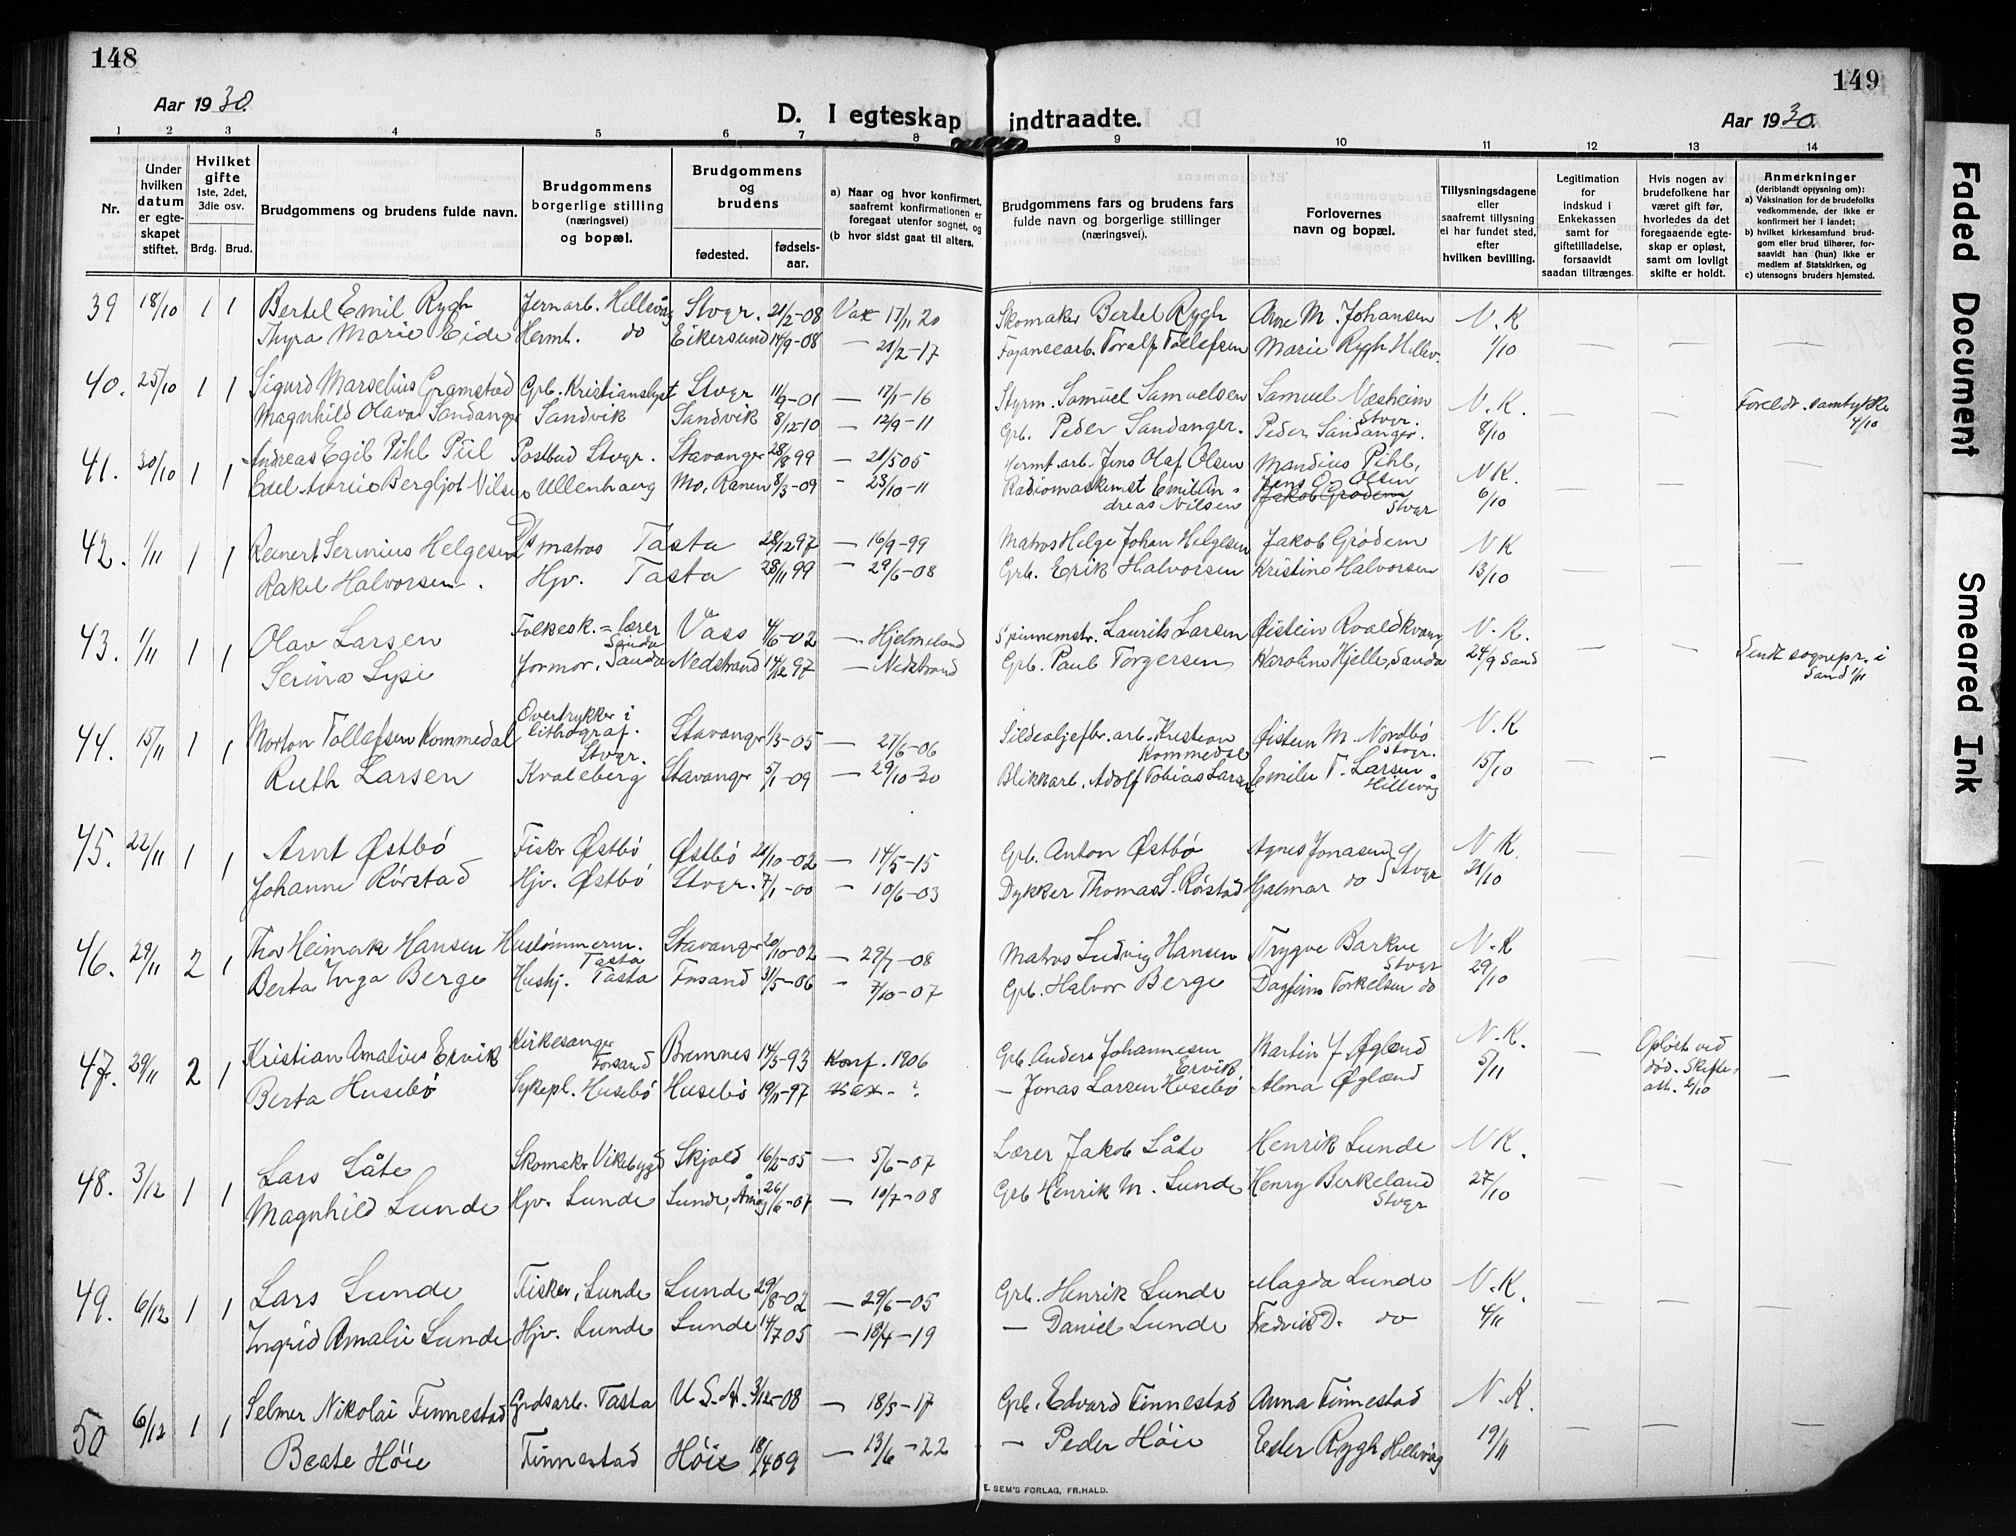 148
149
Aar 1930.
D. I egteskap indtraadte.
Aar 1930.
1 2 3 4 5 6 7 8 9 10 11 12 13 14
Nr.
Under hvilken datum er egteskapet stiftet.
Hvilket gifte 1ste, 2det, 3die osv.
Brdg. Brud.
Brudgommens og brudens fulde navn.
Brudgommens borgerlige stilling (næringsvei) og bopæl.
Brudgommens og brudens
fødested. fødsels-aar.
a) Naar og hvor konfirmert, saafremt konfirmationen er foregaat utenfor sognet, og
(b hvor sidst gaat til alters.
Brudgommens fars og brudens fars fulde navn og borgerlige stillinger (næringsvei).
Forlovernes navn og bopæl.
Tillysningsdagene eller saafremt tillysning ei har fundet sted, efter hvilken bevilling.
Legitimation for indskud i Enkekassen samt for giftetilladelse, forsaavidt saadan tiltrænges.
Hvis nogen av brudefolkene har været gift før, hvorledes da det foregaaende egteskap er opløst, samt om lovligt skifte er holdt.
Anmerkninger (deriblandt oplysning om):
a) Vaksination for de brudefolks vedkommende, der ikke er konfirmert her i landet;
b) hvilket kirkesamfund brudgom eller brud tilhører, forsaavidt han (hun) ikke er medlem af Statskirken, og
c) utensogns bruders hjemsted.
39 18/10 1 1 Bertel Emil Rygh Jernarb. Hillevåg Stvgr. 21/2-08 Vax 17/11 20 Skomaker Bertel Rygh Arne M. Johansen N.K
Thyra Marie Eide Hermt. do Eikersund 14/9-08 — 21/2-17 Fajansearb. Toralf Tollefsen Marie Rygh Hillev. 1/10 — — —
40. 25/10 1 1 Sigurd Marselius Gramstad Grb. Kristianslyst Stvgr 11/9-01 — 17/1-16 Styrm. Samuel Samuelsen Samuel Næsheim Stvgr. N.K. — — Foreldr. samtykke 4/10
Magnhild Olava Sandanger Sandvik Sandvik 8/12-10 — 12/9-11 Grb. Peder Sandanger. Peder Sandanger. 8/10
41. 30/10 1 1 Andreas Egil Pihl Piil Postbud Stvgr. Stavanger 28/8 99 — 21/5 05 Hermt. arb. Jens Olaf Olsen Mandius Pihl, N K.
Edel Marie Bergljot Nilsen Ullenhaug Mo, Ranen 8/3-09 - 23/10-11 Radiomaskinist Emil Andreas Nilsen Jens O. Olsen Jakob Grødem Stvgr 6/10 — — —
42. 1/11 1 1 Reinert Serinius Helgesen D/s matros Tasta 28/12 97 — 16/9-99 Matros Helge Johan Helgesen Jakob Grødem N K
Rakel Halvorsen. Hjv. Tasta 28/11 99 — 29/6-08 Grb. Erik Halvorsen Kristine Halvorsen 13/10 — — —
43. 1/11 1 1 Olav Larsen Folkesk.=lærer Sauda Vass 4/6-02 — Hjelmeland Spinnemstr. Laurits Larsen Øistein Roaldkvam N.K.
Serina Lysi Jormor, Sauda Nedstrand 14/12 97 — Nedstrand Grb. Paul Torgersen Karoline Hjelle, Sauda 24/9 Sand — — Sendt sognepr. i Sand 1/11
44. 15/11 1 1 Morton Tollefsen Kommedal Overtrykker i lithograf. Stvgr. Stavanger 1/3-05 — 21/6-06 Sildeoljefbr. arb. Kristian Kommedal Øistein M. Nordbø Stvgr. N.K
Ruth Larsen Kvaleberg Stavanger 5/1-09 — 29/10-30 Blikkarb. Adolf Tobias Larsen Emilie T. Larsen Hillevåg 15/10 — - —
45. 22/11 1 1 Arnt Østbø Fisker Østbø Østbø 21/10-02 — 14/5-15 Grb. Anton Østbø Agnes Jonasen N K.
Johanne Rørstad Hjv. Østbø Stvgr. 7/1-00 — 10/6-03 Dykker Thomas S. Røstad Hjalmar do Stvgr 21/10 — — —
46. 29/11 2 1 Thor Heimak Hansen Hustømmerm. Tasta Stavanger 20/10-02 — 29/7-08 Matros Ludvig Hansen Trygve Barkve Stvgr N.K
Berta Inga Berge Hushj. Tasta Fosand 31/5-06 — 7/10-07 Grb. Halvor Berge Dagfinn Torkelsen do 29/10 — — —
47. 29/11 2 1 Kristian Amalius Ervik Kirkesanger Forsand Bremnes 14/5-93 Konf. 1906 Grb. Anders Johannesen Ervik Martin J. Øglænd N.K. — Opløst ved død. Skifte att. 2/10 —
Berta Husebø Sykepl. Husebø Husebø 19/11-97 Vax - ? — Jonas Larsen Husebø Alma Øglænd 5/11
48. 3/12 1 1 Lars Låte Skomaker Vikebygd Skjold 16/2-05 — 5/6-07 Lærer Jakob Låte Henrik Lunde N K.
Magnhild Lunde Hjv. Lunde Lunde, Åmøy 26/6-07 — 10/7-08 Grb Henrik M. Lunde Henry Berkeland Stvgr 27/10 — — —
49. 6/12 1 1 Lars Lunde Fisker, Lunde Lunde 29/8-02 — 29/6-05 Grb. Henrik Lunde Magda Lunde N.K.
Ingrid Amalie Lunde Hjv. Lunde Lunde 14/7 05 — 18/4-19 — Daniel Lunde Fredrik D. do 4/11 — — —
50 6/12 1 1 Selmer Nikolai Finnestad Grdsarb. Tasta U.S.A. 3/12-08 — 18/5-17 Grb. Edvard Finnestad Anna Finnestad N.K.
Beate Høie Finnestad Høie 18/4 09 — 13/6-22 — Peder Høie Eeder Rygh Hillevåg 19/11 — — —
E. SEM'S FORLAG, FR.HALD.
Faded Document
Smeared Ink